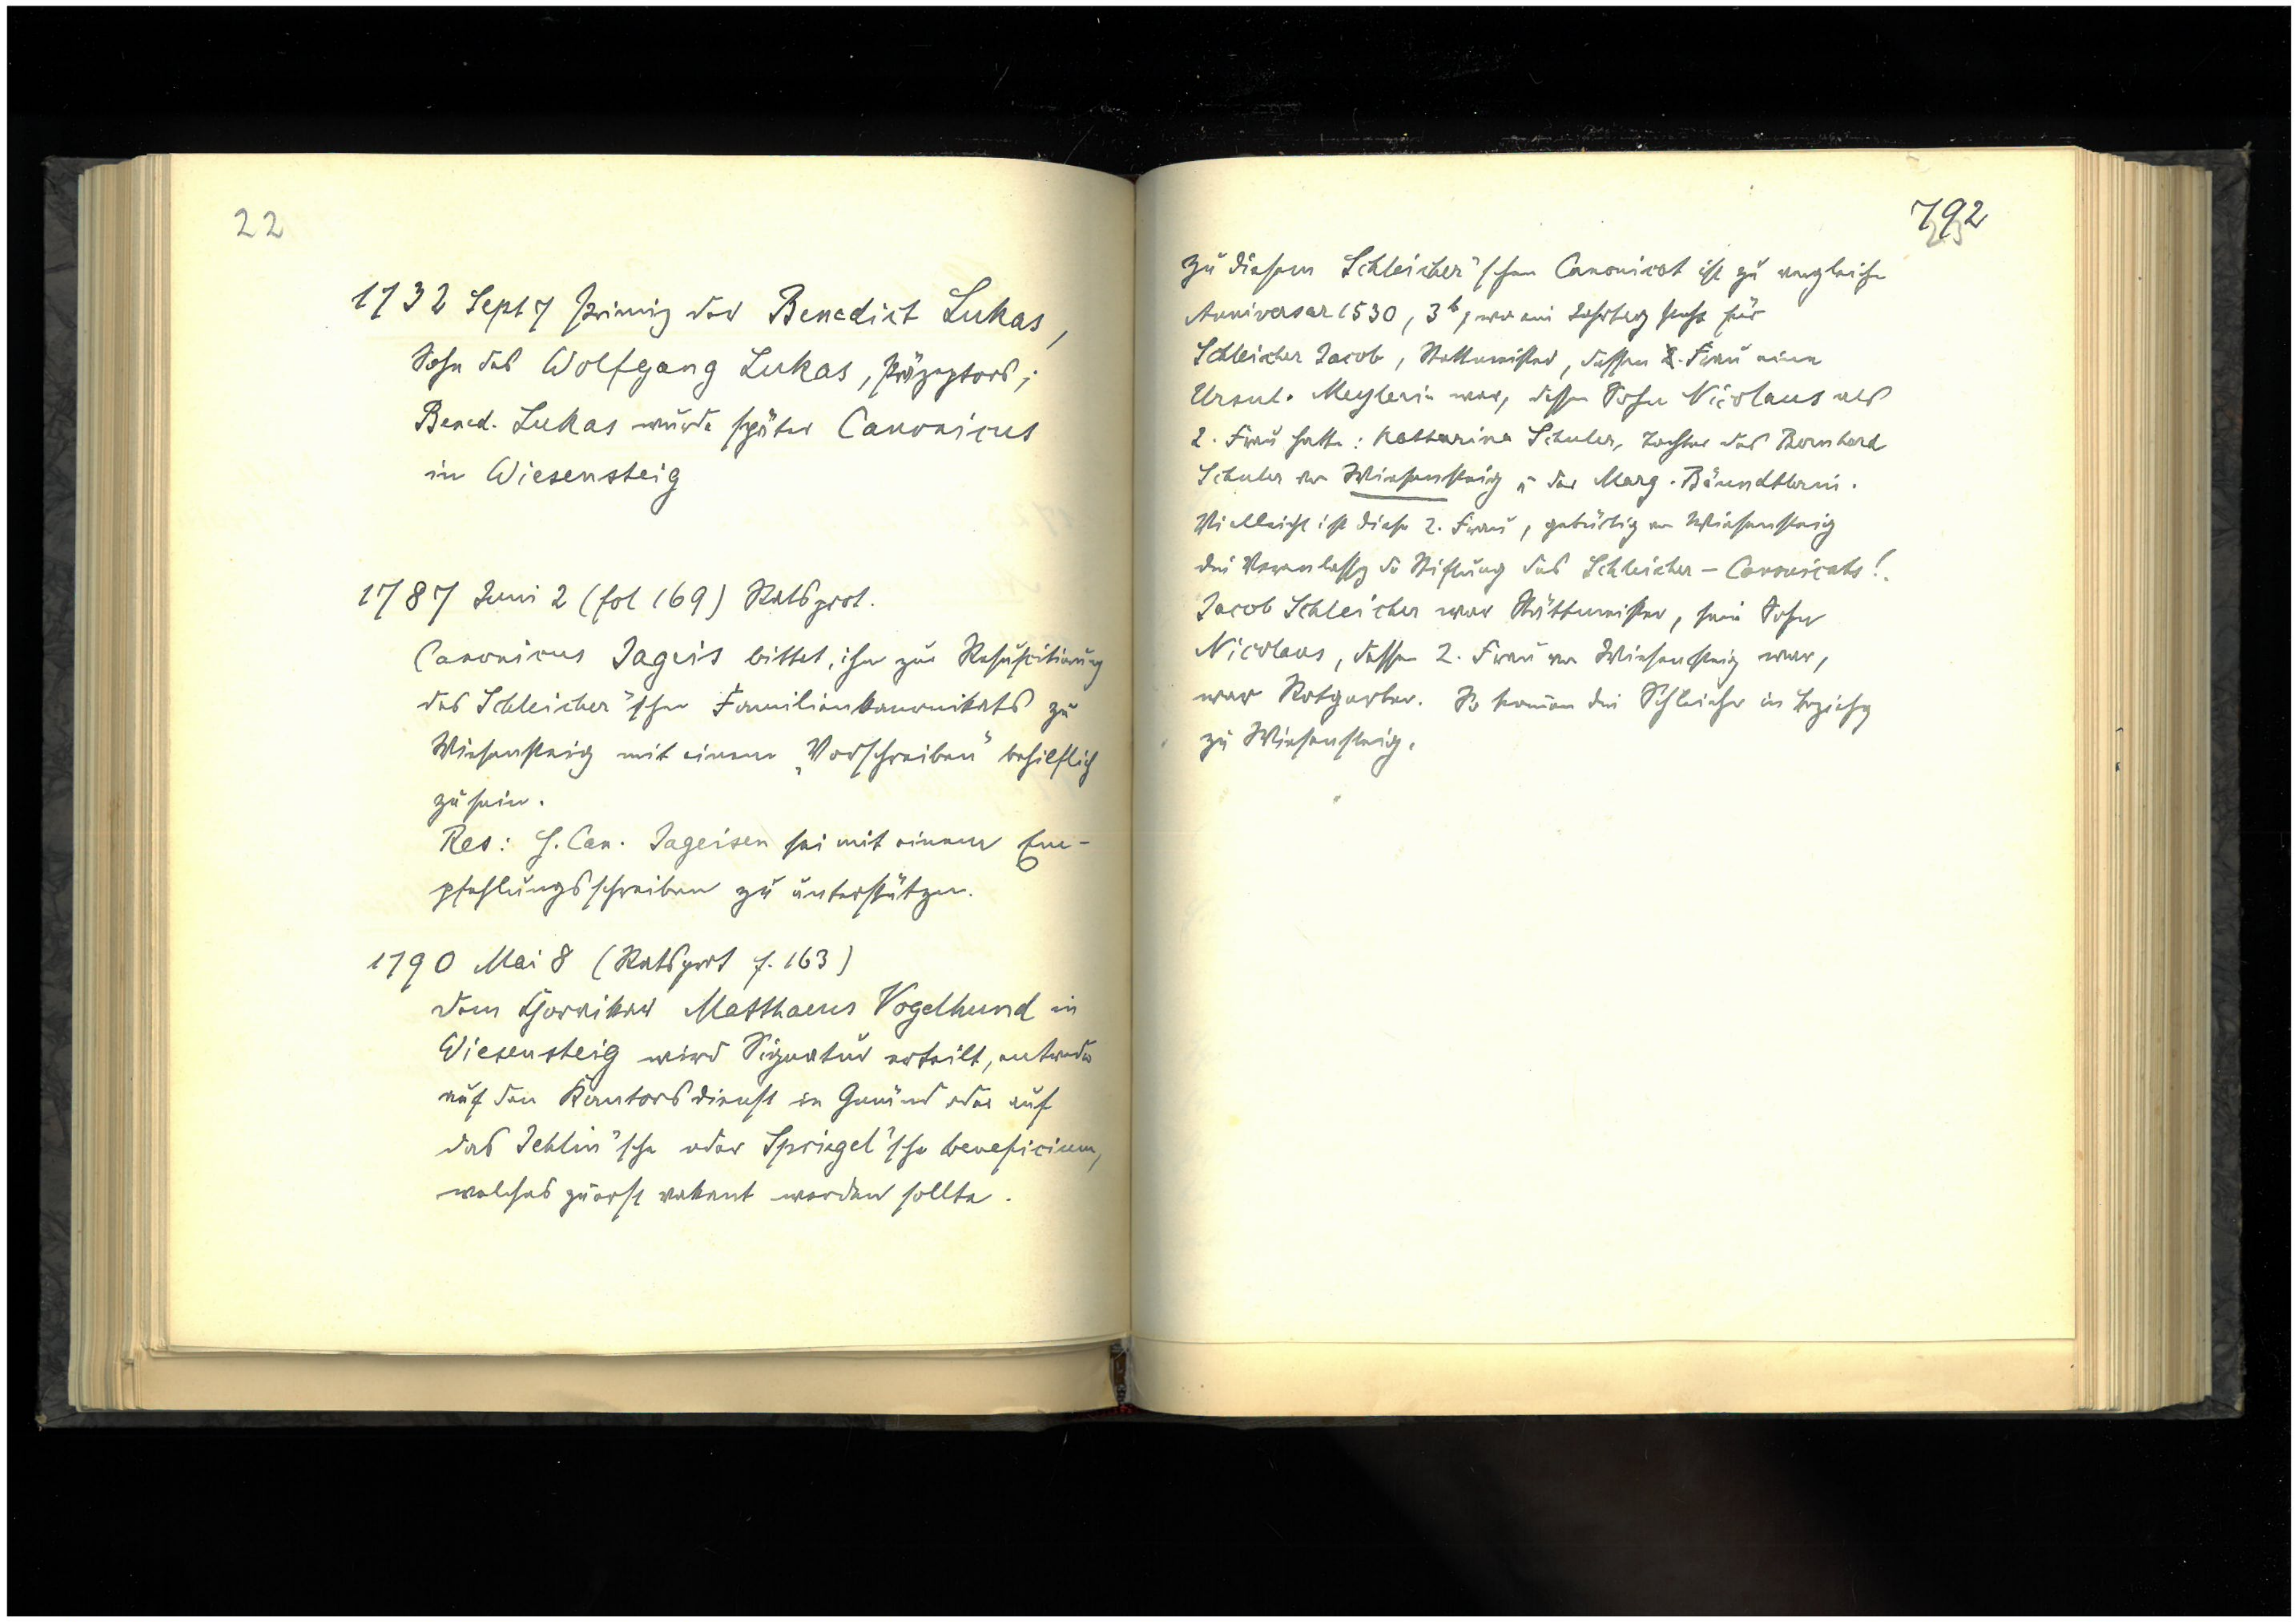 22
1732 Sept 7 Primiz des Benedict Lukas,
Sohn des Wolfgang Lukas, Präzeptors;
Bened. Lukas wurde später Canonicus
in Wiesensteig
1787 Juni 2 (fol 169) Ratsprot.
Canonicus Jageis bittet, ihn zur Resuscitierung
des Schleicher'schen Familienkanonikats zu
Wiesensteig mit einem „Vorschreiben" behilflich
zu sein.
Res: H. Can. Jageisen sei mit einem Em-
pfehlungsschreiben zu unterstützen.
1790 Mai 8 (Ratsprot f. 163)
dem Chorvikar Matthaeus Vogelhund in
Wiesensteig wird Signatur erteilt, entweder
auf den Kantorsdienst in Gmünd oder auf
das Jehlin'sche oder Spriegel'sche beneficium,
welches zuerst vakant werden sollte.
792
Zu diesem Schleicher'schen Canonicat ist zu vergleichen
Anniversar 1530, 3b, wo ein Jahrtag steht für
Schleicher Jacob, Stettmeister, dessen Frau eine
Ursul. Meylerin war, dessen Sohn Nicolaus als
2. Frau hatte: Katharina Schuler, Tochter des Bernhard
Schuler von Wiesensteig u der Marg. Bäundtlerin.
Vielleicht ist diese 2. Frau, gebürtig von Wiesensteig
die Veranlassg der Stiftung des Schleicher-Canonicats!
Jacob Schleicher war Stättmeister, sein Sohn
Nicolaus, dessen 2. Frau von Wiesensteig war,
war Rotgerber. So kamen die Schleicher in Beziehg
zu Wiesensteig.